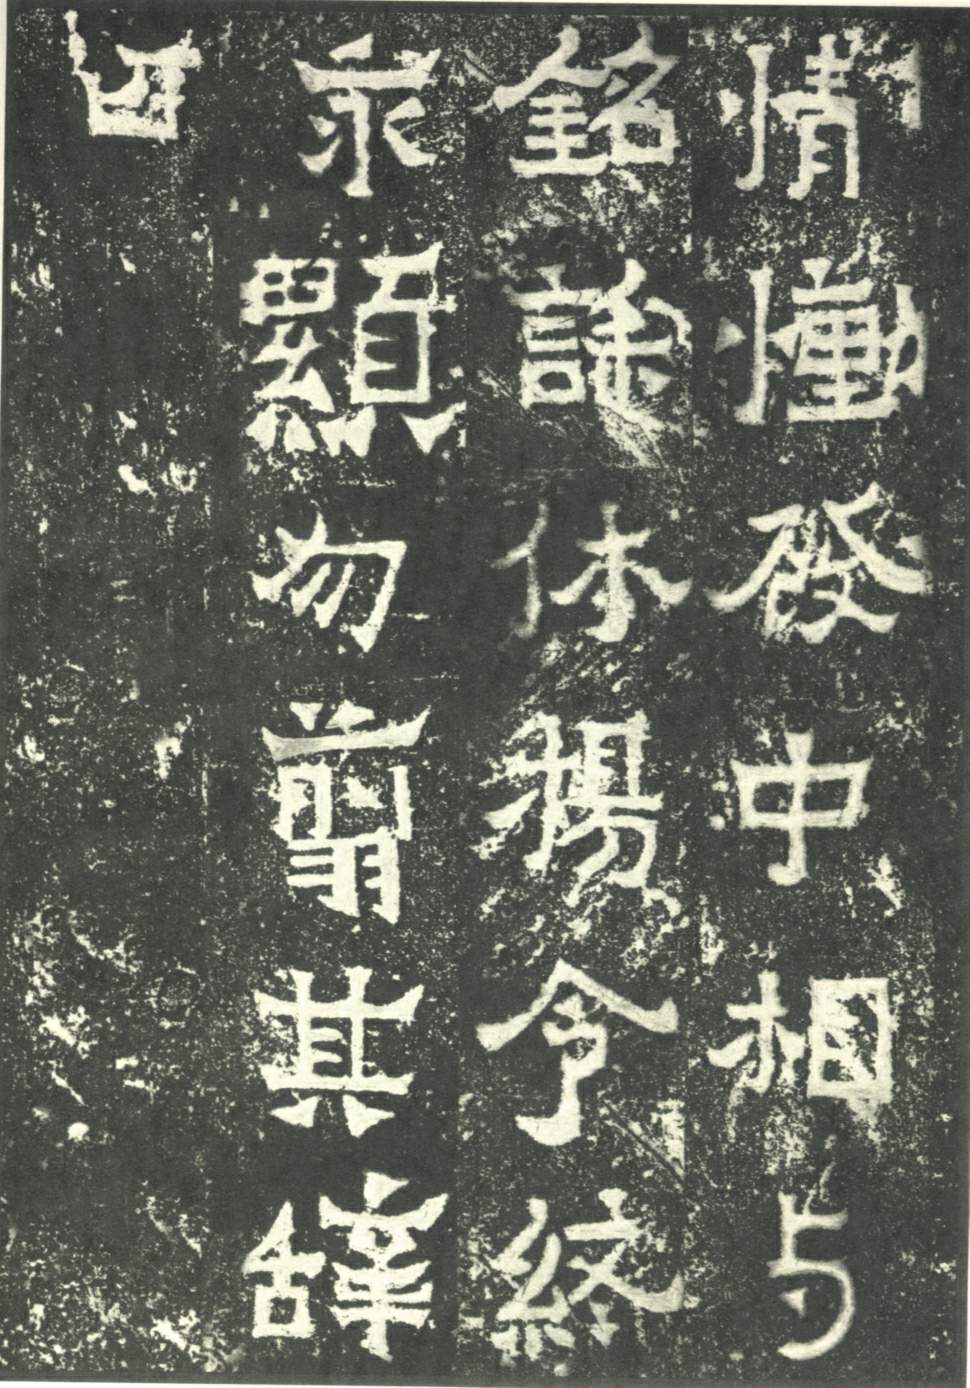 情慟發中相与
銘誄休揚令終
永顯勿翦其辭
曰